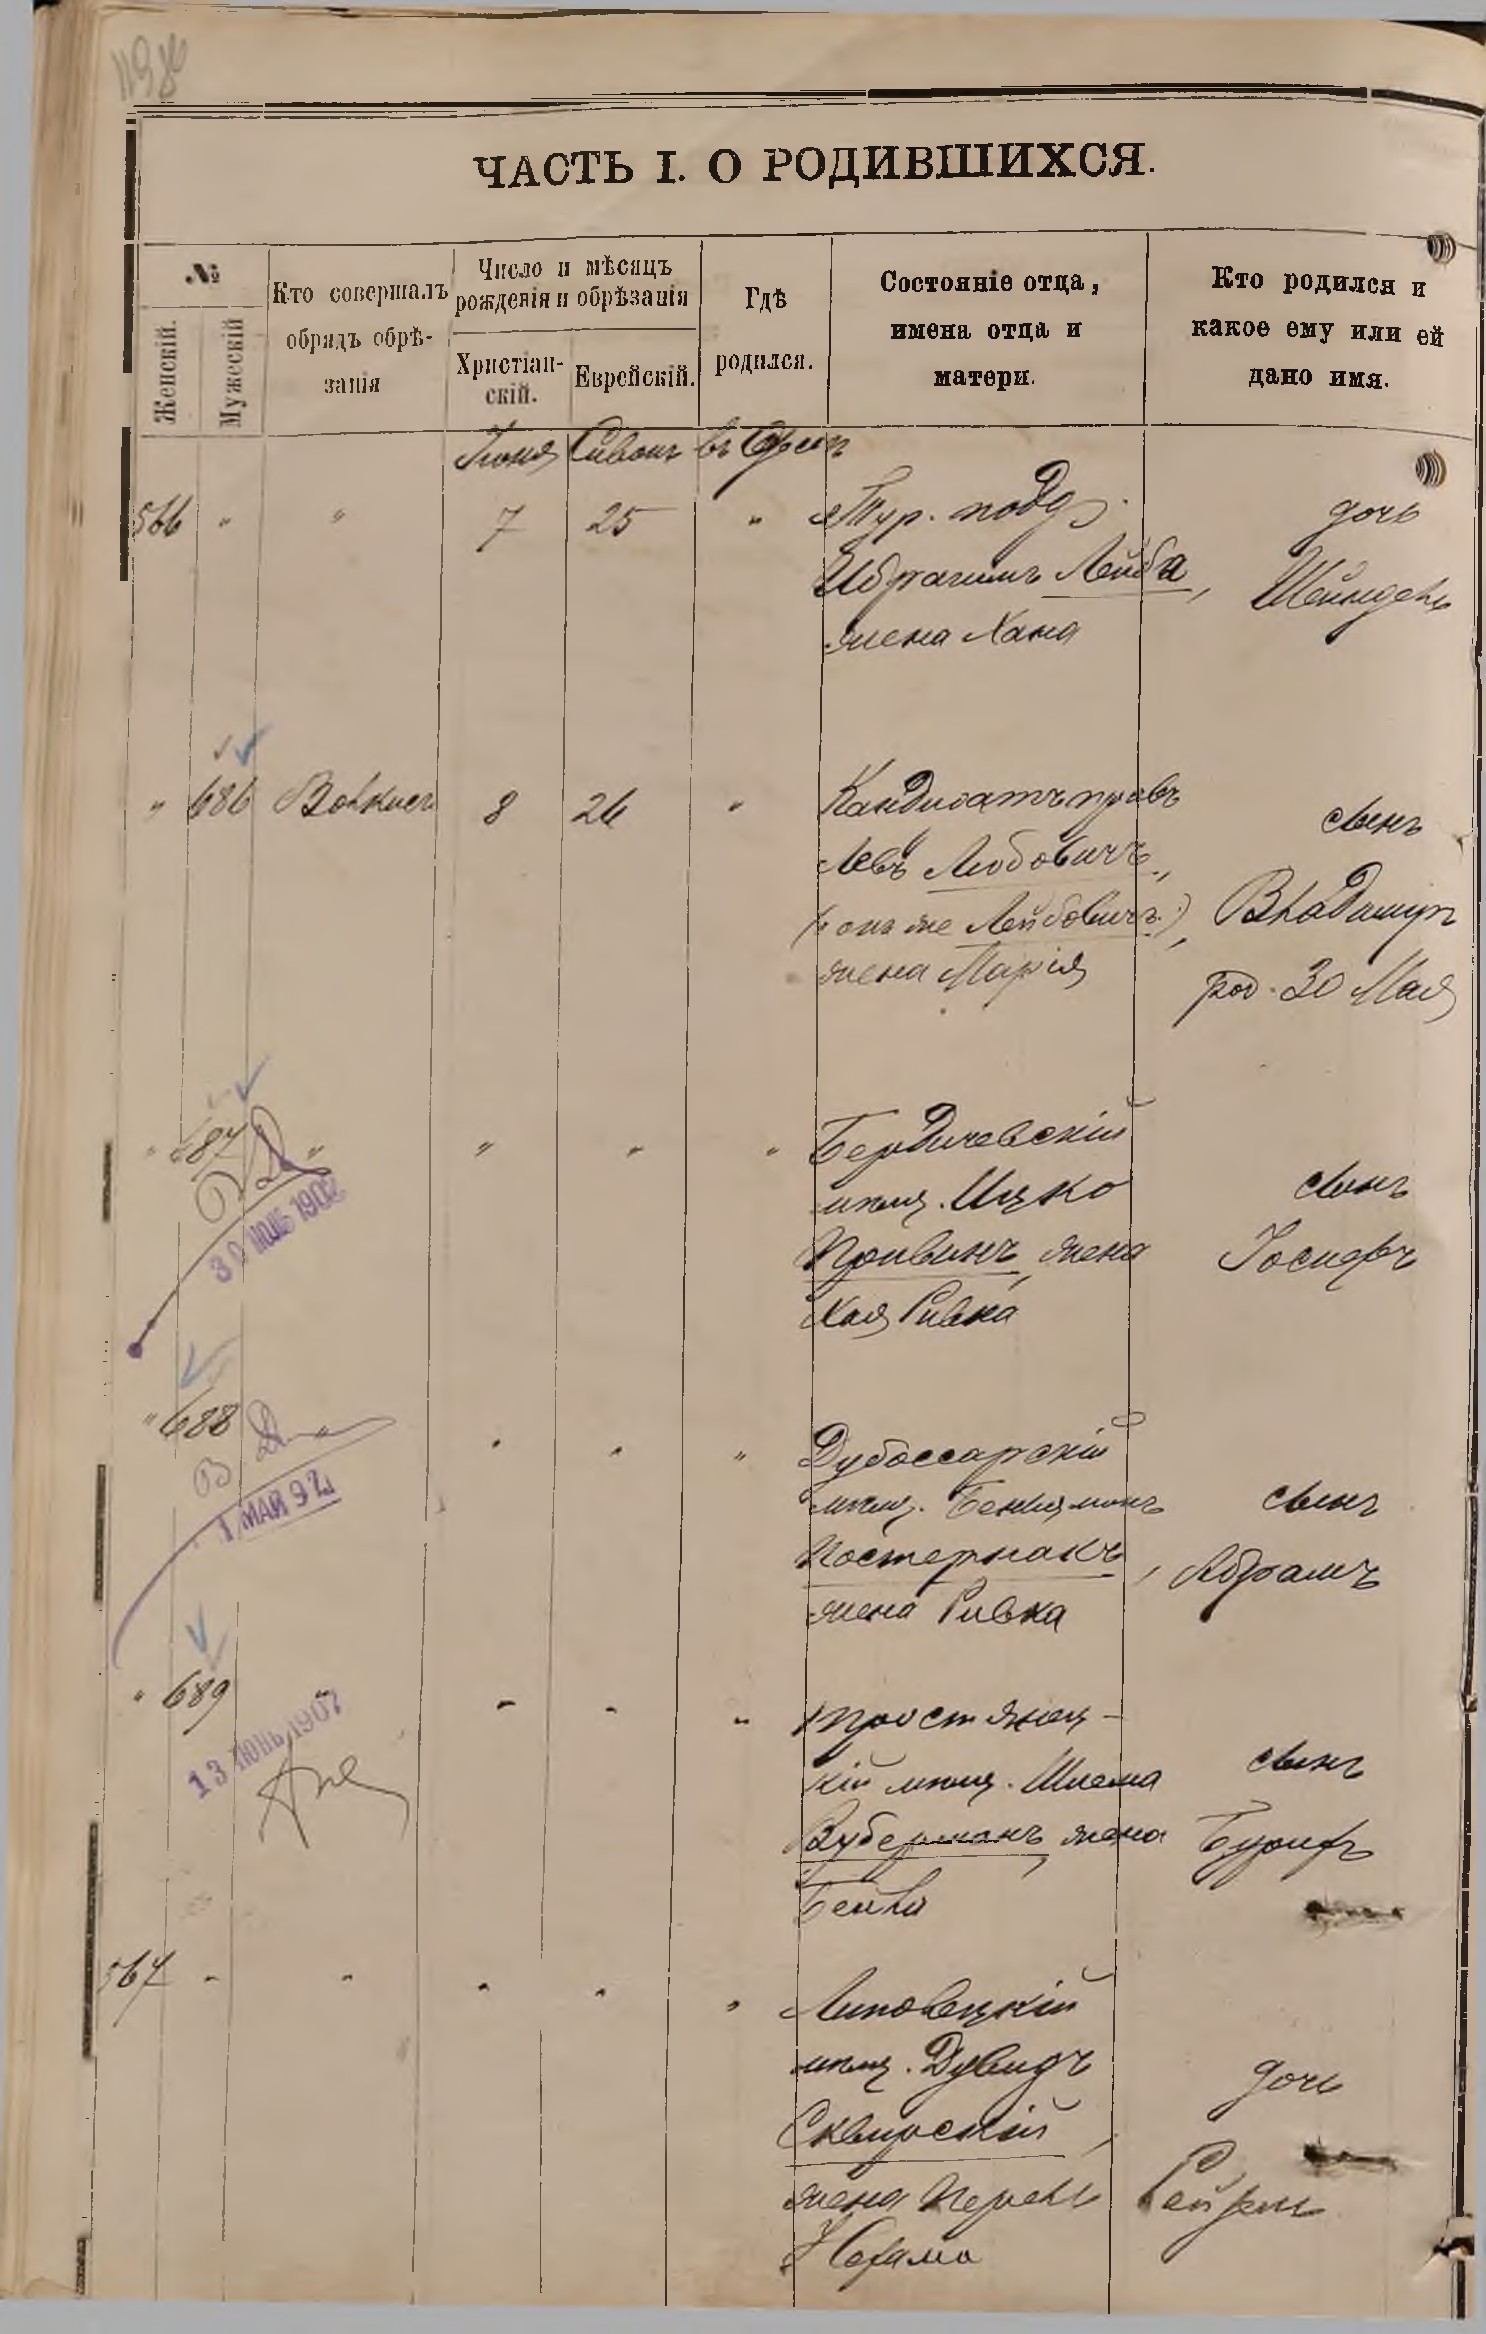 ЧАСТЬ I. О РОДИВШИХСЯ.
№
Женскій.
Мужескій
Кто совершалъ
обрядъ обрѣ-
занія
Число и мѣсяцъ
рожденія и обрѣзанія
Христіан-
скій.
Еврейскій.
Гдѣ
родился.
Состояніе отца,
имена отца и
матери.
Кто родился и
какое ему или ей
дано имя.
Іюня Сиванъ въ
566 " " 7 25 " Тур. подд. дочь
Ибрагимъ Лейба, Шейндель
жена Хана
" 686 Волкисъ 8 26 " Кандидатъ правъ сынъ
Левъ Любовичъ,
(онъ же Лейбовичъ), Владимиръ
жена Марія род. 30 Мая
" 687 " " " " Бердичевскій
мѣщ. Ицко сынъ
Привинъ, жена Іосифъ
Хая Ривка
30 ІЮЛЬ 1902
" 688 " " " " Дубоссарскій
мѣщ. Беніяминъ сынъ
Постернакъ, Абрамъ
жена Ривка
1 МАЙ 92
" 689 " " " Тростянец-
кій мѣщ. Шлема сынъ
Зуберманъ, жена
Бейла
13 ІЮНЬ 1907
567 " " " " " Липовецкій
мѣщ. Дувидъ дочь
Сквирскій,
жена Перель Рейзель
Нехама